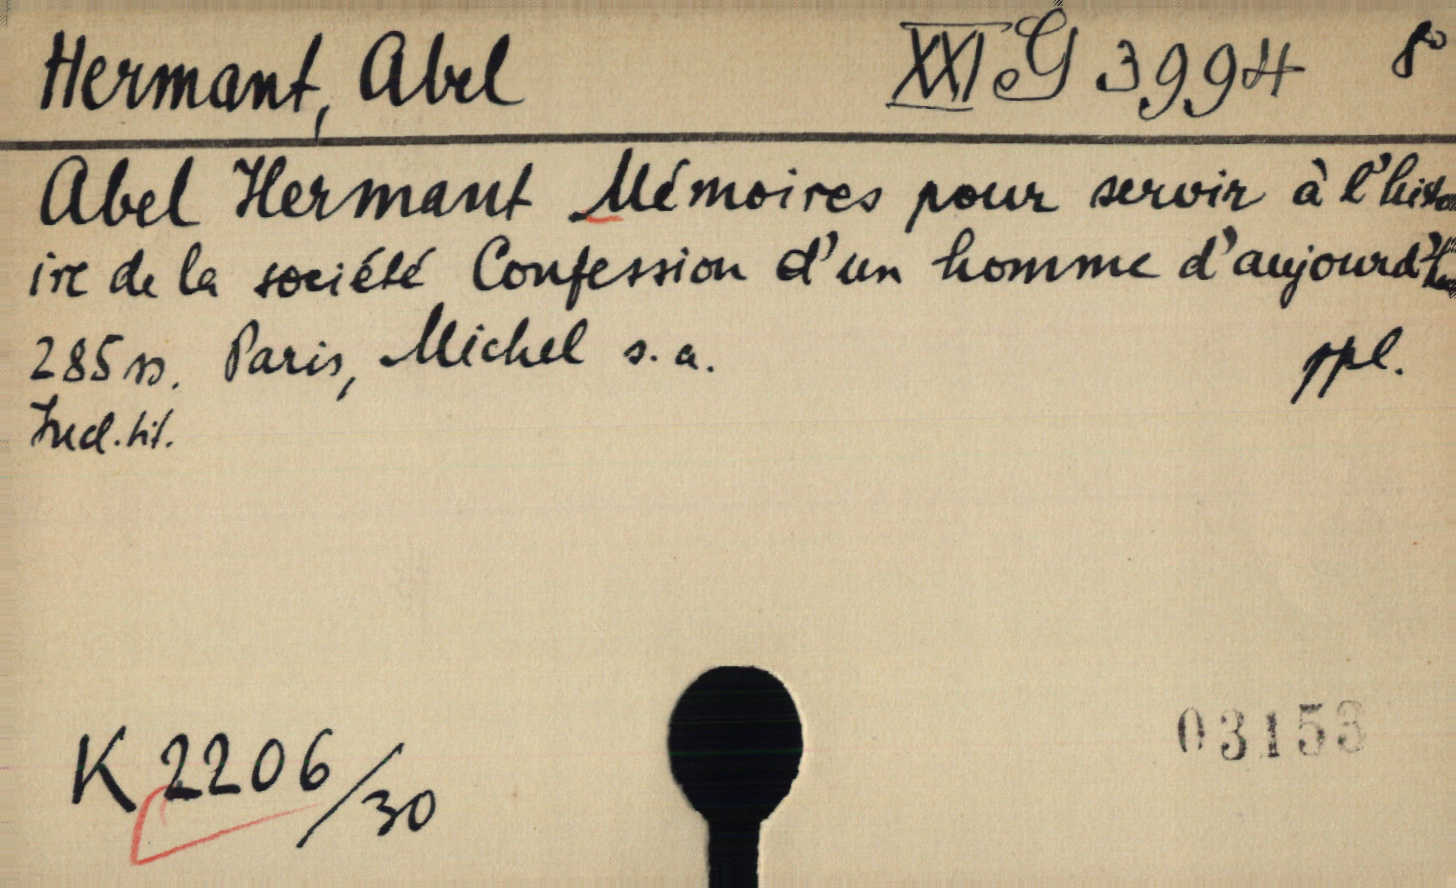 Hermant, Abel XXI G 3994 8°
Abel Hermant Mémoires pour servir à l'histo
ire de la société Confession d'un homme d'aujourd'hui
285 ss. Paris, Michel s. a. ppl.
Ind. tit.
K 2206/30
03153